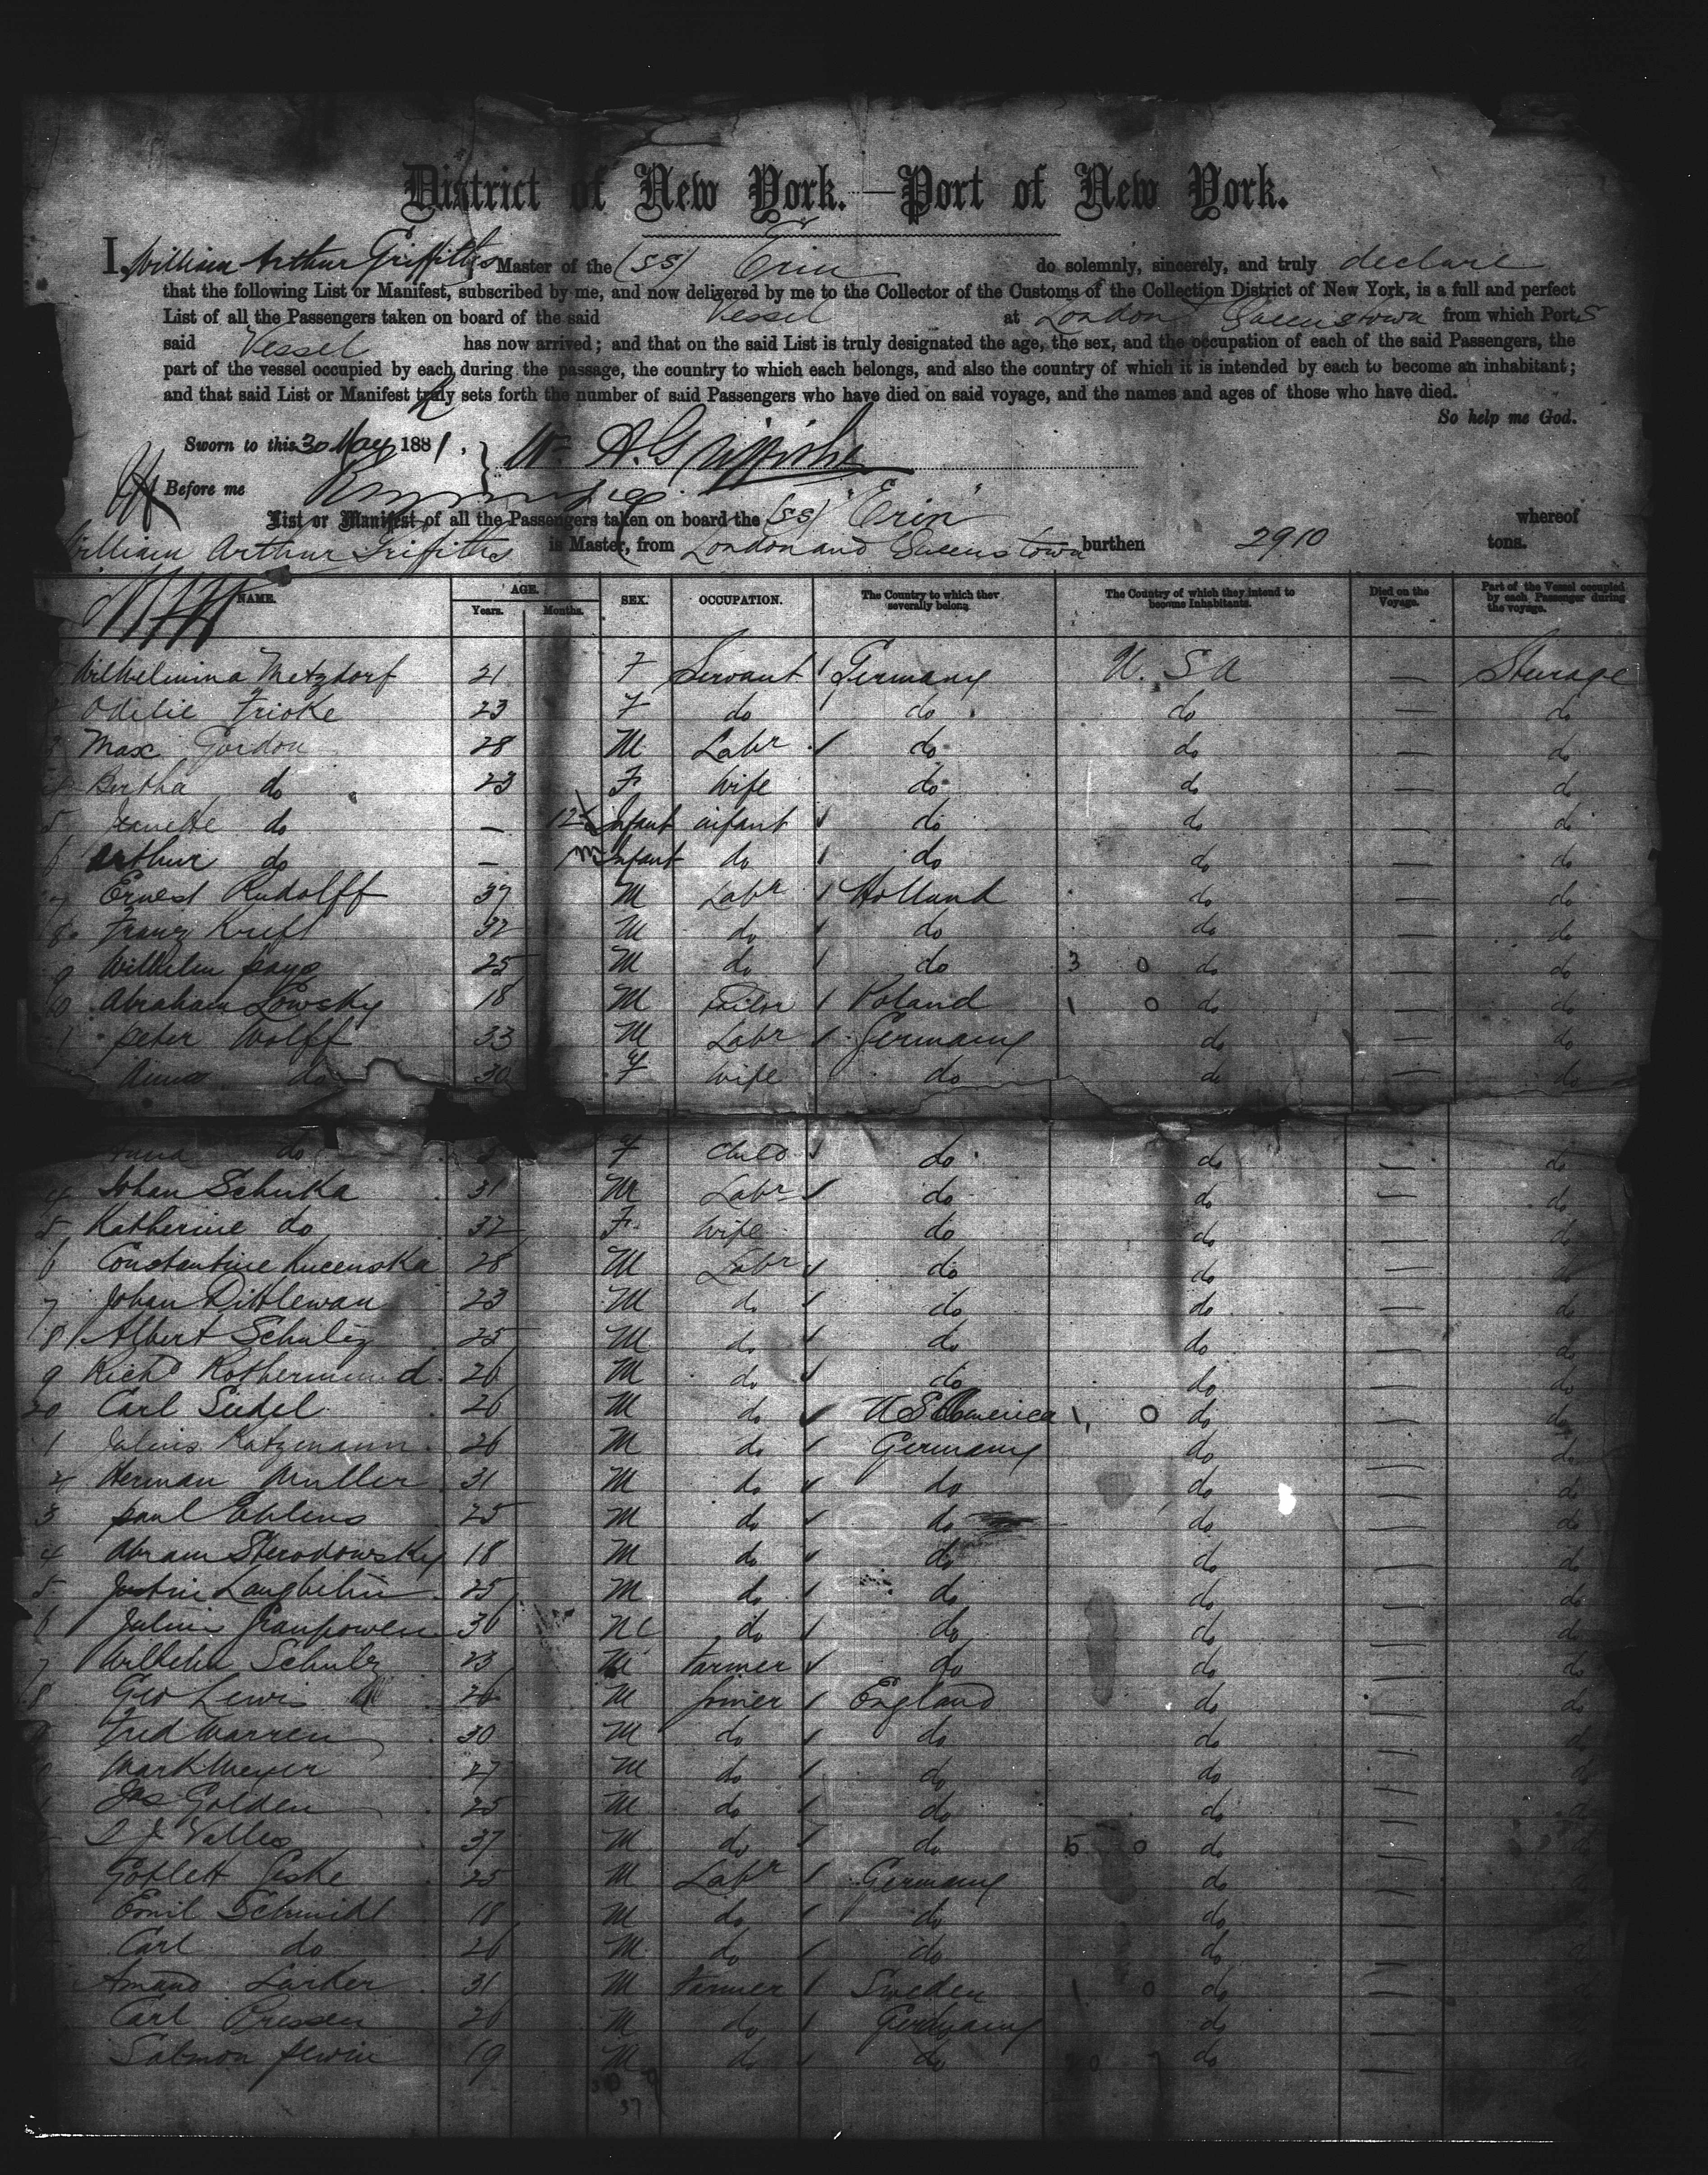 District of New York.—Port of New York.
I, William Arthur Griffiths Master of the (SS) Erin do solemnly, sincerely, and truly declare
that the following List or Manifest, subscribed by me, and now delivered by me to the Collector of the Customs of the Collection District of New York, is a full and perfect
List of all the Passengers taken on board of the said Vessel at London Queenstown from which Ports
said Vessel has now arrived; and that on the said List is truly designated the age, the sex, and the occupation of each of the said Passengers, the
part of the vessel occupied by each during the passage, the country to which each belongs, and also the country of which it is intended by each to become an inhabitant;
and that said List or Manifest truly sets forth the number of said Passengers who have died on said voyage, and the names and ages of those who have died.
So help me God.
Sworn to this 30 May 1881. Wm A. Griffiths
Before me
List or Manifest of all the Passengers taken on board the (SS) "Erin" whereof
William Arthur Griffiths is Master, from London and Queenstown burthen 2910 tons.
NAME. AGE. Years. Months. SEX. OCCUPATION. The Country to which they severally belong. The Country of which they intend to become Inhabitants. Died on the Voyage. Part of the Vessel occupied by each Passenger during the voyage.
Wilhelmina Metzdorf 21 F Servant Germany U. S A — Sterage
2 Odilie Fricke 23 F do do do — do
3 Max Gordon 28 M Labr do do — do
4 Bertha do 23 F Wife do do — do
5 Jeanette do — 12 Infant infant do do — do
6 Arthur do — Infant do do do — do
7 Ernest Rudolff 37 M Labr Holland do — do
8 Franz Kreft 32 M do do do — do
9 Wilhelm 25 M do do 3 0 do — do
10 Abraham Lowsky 18 M Poland 1 0 do — do
1 Peter Wolff 33 M Labr Germany do — do
Anna do 30 F Wife do do — do
do F Child do do — do
4 Johan Schuka 31 M Labr do do — do
5 Katherine do 32 F Wife do do — do
6 Constantine Kucenska 28 M Labr do do — do
7 Johan Dittlewan 23 M do do do — do
8 Albert Schulz 25 M do do do — do
9 Richd Rothermund 26 M do do do — do
20 Carl Seidel 26 M do U S America 1 0 do — do
1 Julius Katzemann 26 M do Germany do — do
2 Herman Muller 31 M do do do — do
3 Paul Ehlens 25 M do do do — do
4 Abram 18 M do do do — do
5 Justin 25 M do do do — do
6 Julius 30 M do do do — do
7 Wilhelm Schulz 23 M Farmer do do — do
8 Geo Lewis M Joiner England do — do
Fred Warren 30 M do do do — do
Mark Meyer 27 M do do do — do
Jas Golden 25 M do do do — do
37 M do do 5 0 do — do
Gotlett Geske 25 M Labr Germany do — do
Emil Schmidt 18 M do do do — do
Carl do 26 M do do do — do
Amand 31 M Farmer Sweden 1 0 do — do
Carl Bressen 26 M do Germany do — do
Salmon 19 M do do do —